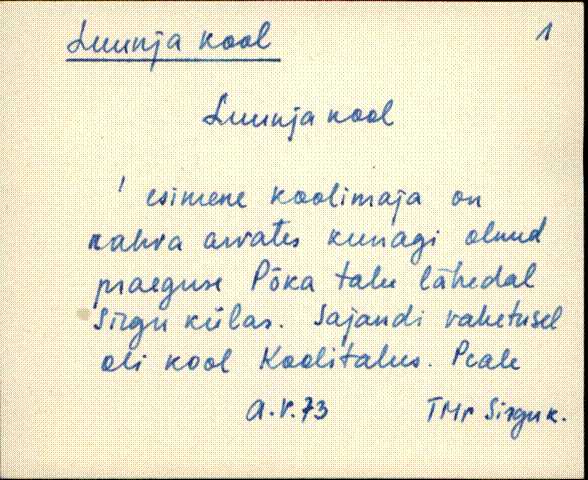 Luunja kool
1
Luunja kool
' esimene koolimaja on
rahva arvates kunagi olnud
praeguse Põka talu lähedal
Sirgu külas. Sajandi vahetusel
oli kool Koolitalus. Peale
a.r.73 TMr Sirgu k.